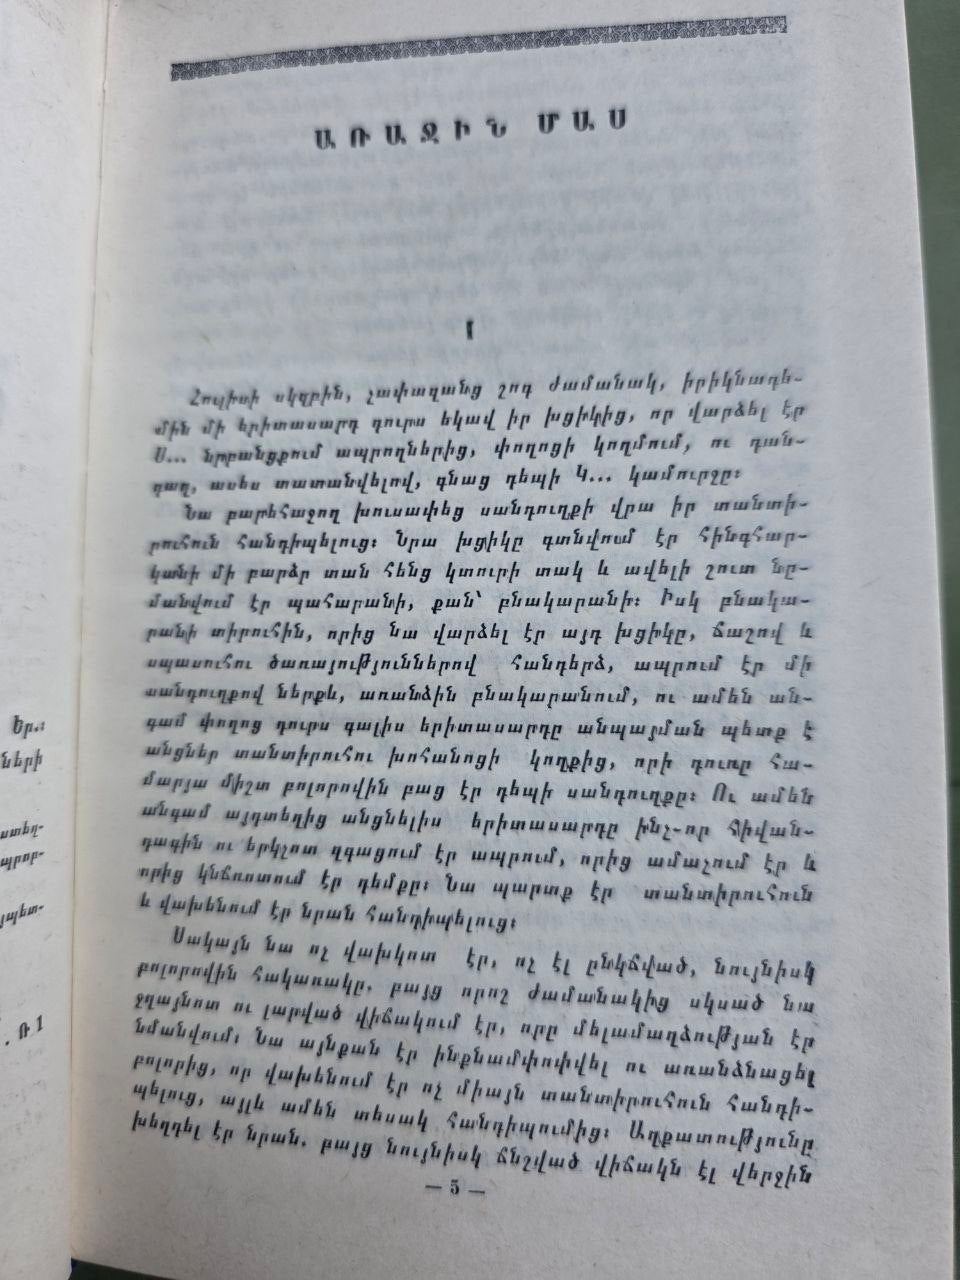 ԱՌԱՋԻՆ ՄԱՍ
I
Հուլիսի սկզբին, չափազանց շոգ ժամանակ, իրիկնադե-
մին մի երիտասարդ դուրս եկավ իր խցիկից, որ վարձել էր
Ս... նրբանցքում ապրողներից, փողոցի կողմում, ու դան-
դաղ, ասես տատանվելով, գնաց դեպի Կ... կամուրջը։
Նա բարեհաջող խուսափեց սանդուղքի վրա իր տանտի-
րուհուն հանդիպելուց։ Նրա խցիկը գտնվում էր հինգհար-
կանի մի բարձր տան հենց կտուրի տակ և ավելի շուտ նը-
մանվում էր պահարանի, քան՝ բնակարանի։ Իսկ բնակա-
րանի տիրուհին, որից նա վարձել էր այդ խցիկը, ճաշով և
սպասուհու ծառայություններով հանդերձ, ապրում էր մի
սանդուղքով ներքև, առանձին բնակարանում, ու ամեն ան-
գամ փողոց դուրս գալիս երիտասարդը անպայման պետք է
անցներ տանտիրուհու խոհանոցի կողքից, որի դուռը հա-
մարյա միշտ բոլորովին բաց էր դեպի սանդուղքը։ Ու ամեն
անգամ այդտեղից անցնելիս երիտասարդը ինչ-որ հիվան-
դագին ու երկչոտ զգացում էր ապրում, որից ամաչում էր և
որից կնճռոտում էր դեմքը։ Նա պարտք էր տանտիրուհուն
և վախենում էր նրան հանդիպելուց։
Սակայն նա ոչ վախկոտ էր, ոչ էլ ընկճված, նույնիսկ
բոլորովին հակառակը. բայց որոշ ժամանակից սկսած նա
ջղայնոտ ու լարված վիճակում էր, որը մելամաղձության էր
նմանվում։ Նա այնքան էր ինքնամփոփվել ու առանձնացել
բոլորից, որ վախենում էր ոչ միայն տանտիրուհուն հանդի-
պելուց, այլև ամեն տեսակ հանդիպումից։ Աղքատությունը
խեղդել էր նրան. բայց նույնիսկ ճնշված վիճակն էլ վերջին
— 5 —